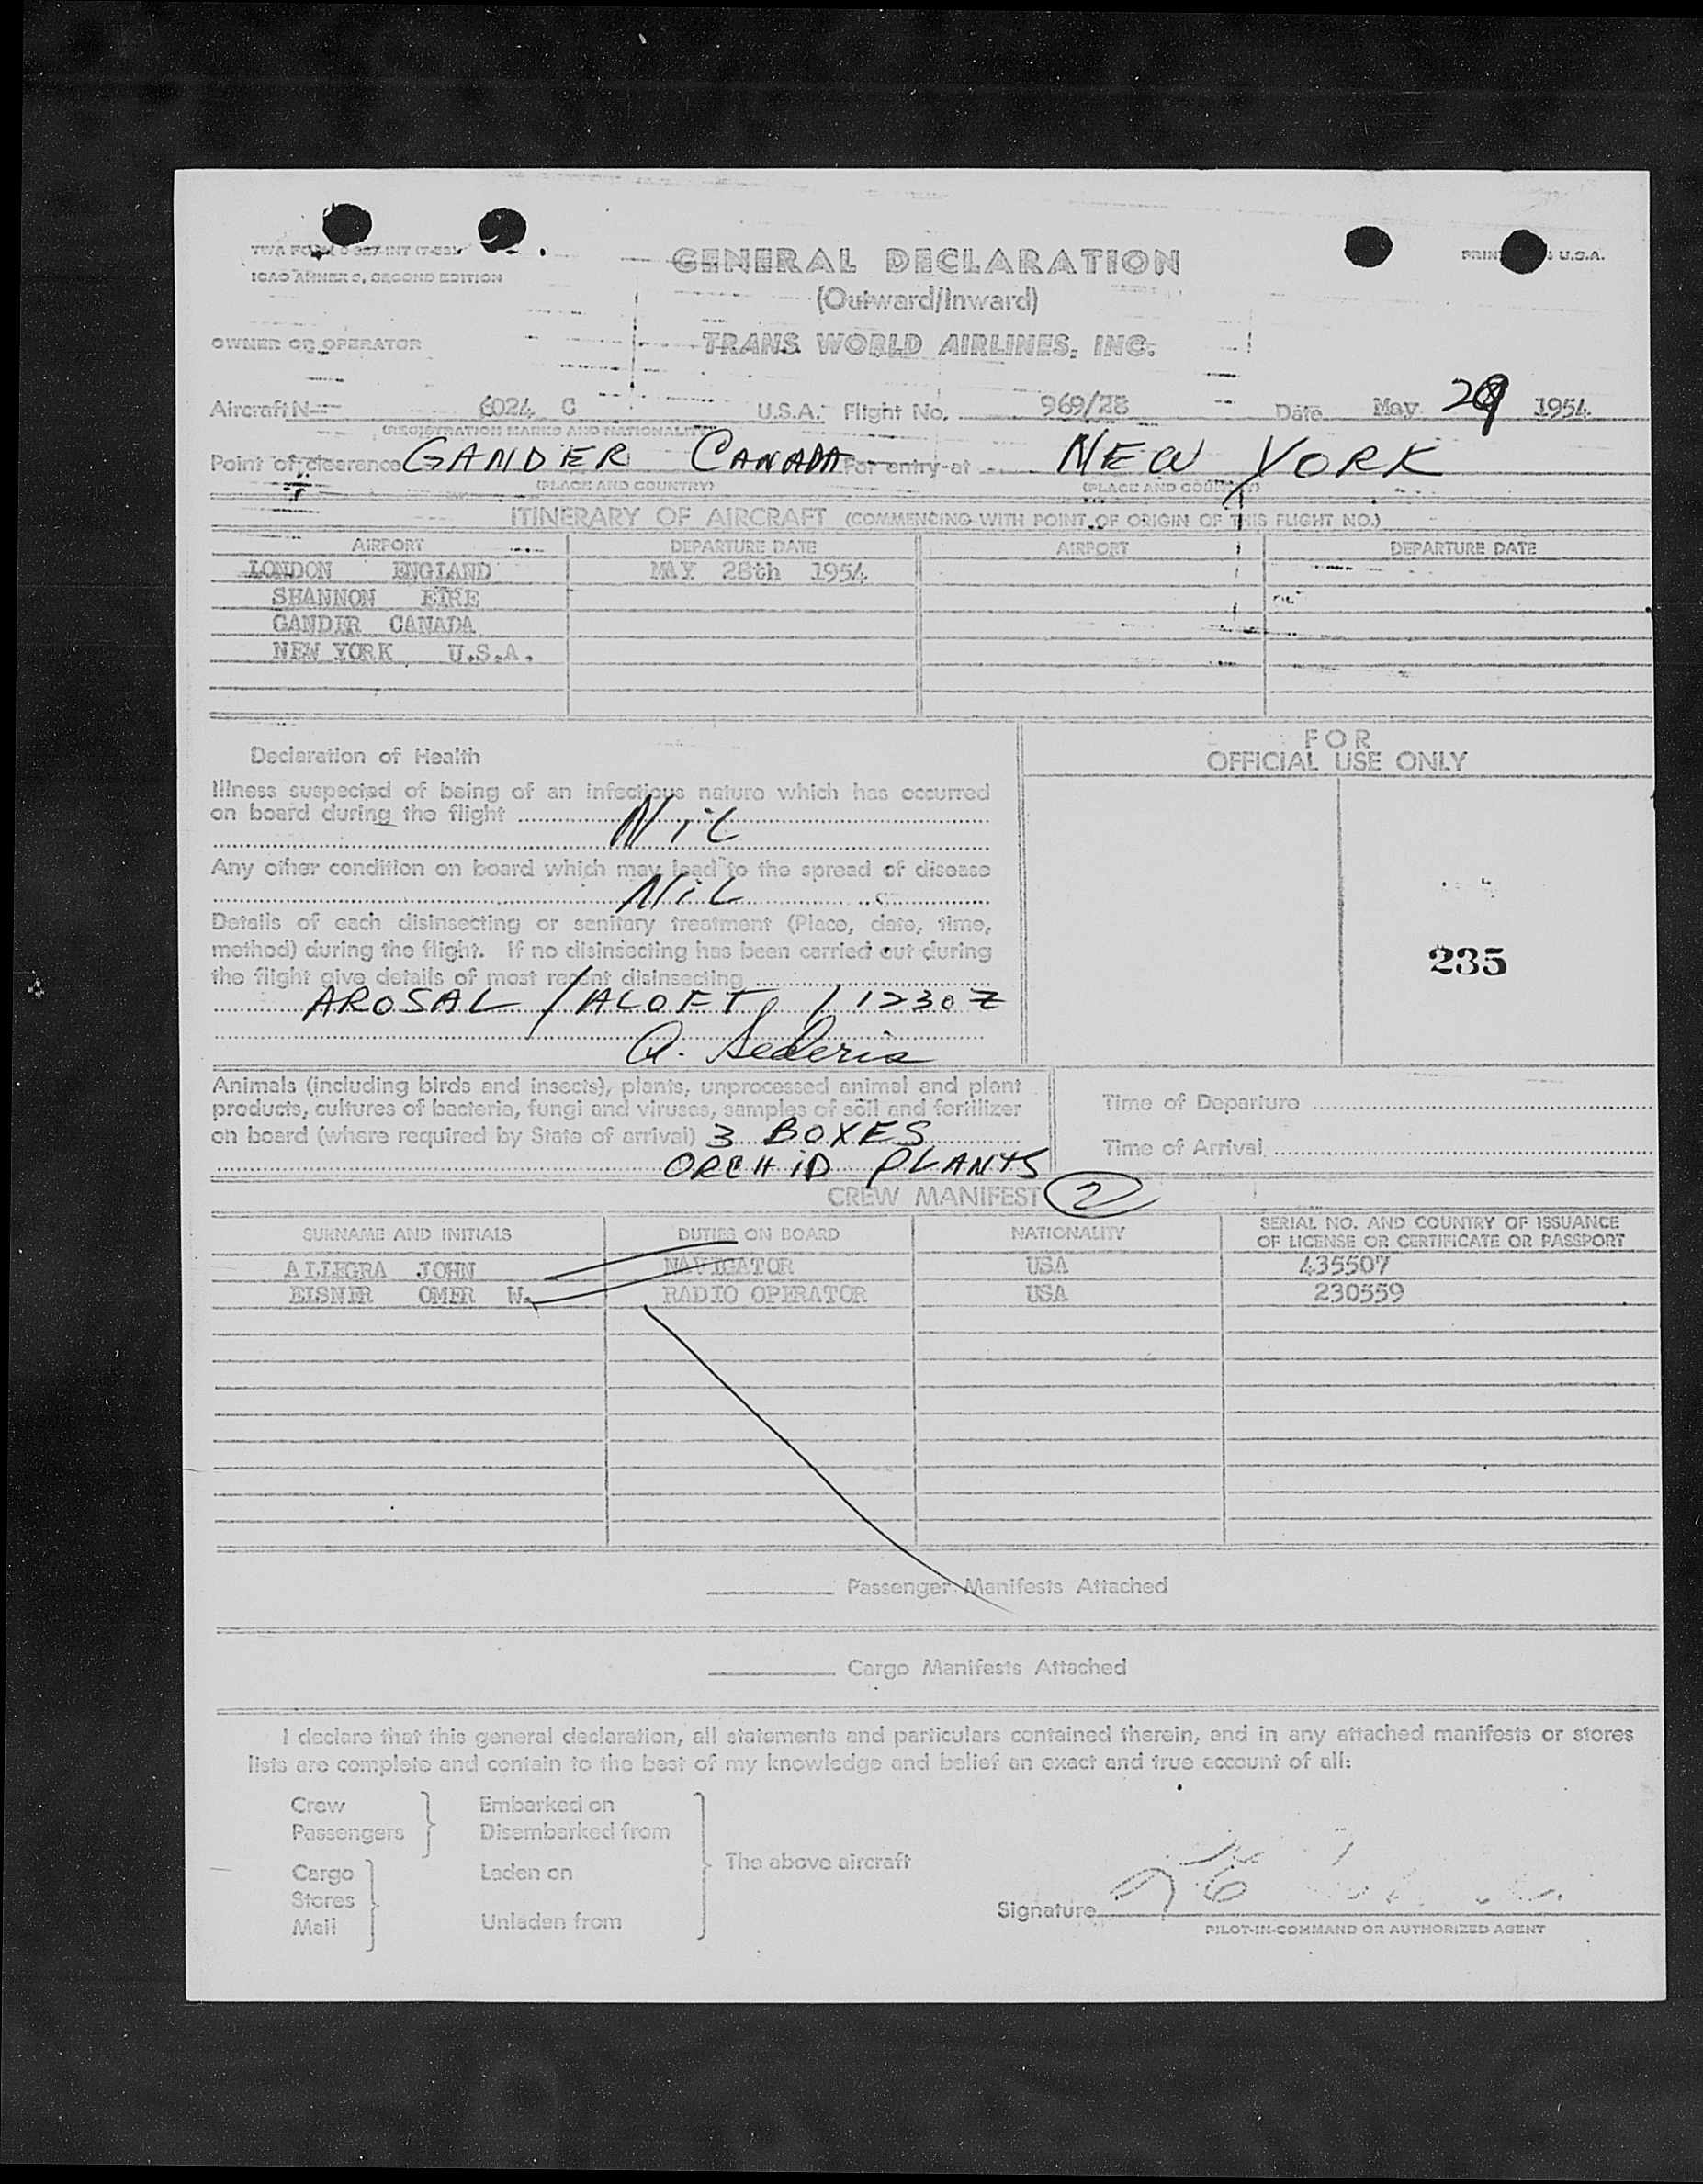 ICAO ANNEX 9, SECOND EDITION
GENERAL DECLARATION
(Outward/Inward)
PRINTED IN U.S.A.
OWNER OR OPERATOR TRANS WORLD AIRLINES, INC.
Aircraft N 6024 C U.S.A. Flight No. 969/28 Date May 29 1954
(REGISTRATION MARKS AND NATIONALITY)
Point of clearance GANDER CANADA For entry at NEW YORK
(PLACE AND COUNTRY) (PLACE AND COUNTRY)
ITINERARY OF AIRCRAFT (COMMENCING WITH POINT OF ORIGIN OF THIS FLIGHT NO.)
AIRPORT DEPARTURE DATE AIRPORT DEPARTURE DATE
LONDON ENGLAND MAY 28th 1954
SHANNON EIRE
GANDER CANADA
NEW YORK U.S.A.
Declaration of Health
Illness suspected of being of an infectious nature which has occurred
on board during the flight NiL
Any other condition on board which may lead to the spread of disease
NiL
Details of each disinsecting or sanitary treatment (Place, date, time,
method) during the flight. If no disinsecting has been carried out during
the flight give details of most recent disinsecting
AROSAL / ALOFT / 1230 Z
FOR
OFFICIAL USE ONLY
235
Animals (including birds and insects), plants, unprocessed animal and plant
products, cultures of bacteria, fungi and viruses, samples of soil and fertilizer
on board (where required by State of arrival) 3 BOXES
ORCHiD PLANTS
Time of Departure
Time of Arrival
CREW MANIFEST 2
SURNAME AND INITIALS DUTIES ON BOARD NATIONALITY SERIAL NO. AND COUNTRY OF ISSUANCE
OF LICENSE OR CERTIFICATE OR PASSPORT
ALLEGRA JOHN NAVIGATOR USA 435507
EISNER OMER W. RADIO OPERATOR USA 230559
Passenger Manifests Attached
Cargo Manifests Attached
I declare that this general declaration, all statements and particulars contained therein, and in any attached manifests or stores
lists are complete and contain to the best of my knowledge and belief an exact and true account of all:
Crew Embarked on
Passengers Disembarked from
The above aircraft
Cargo Laden on
Stores
Mail Unladen from
Signature
PILOT-IN-COMMAND OR AUTHORIZED AGENT